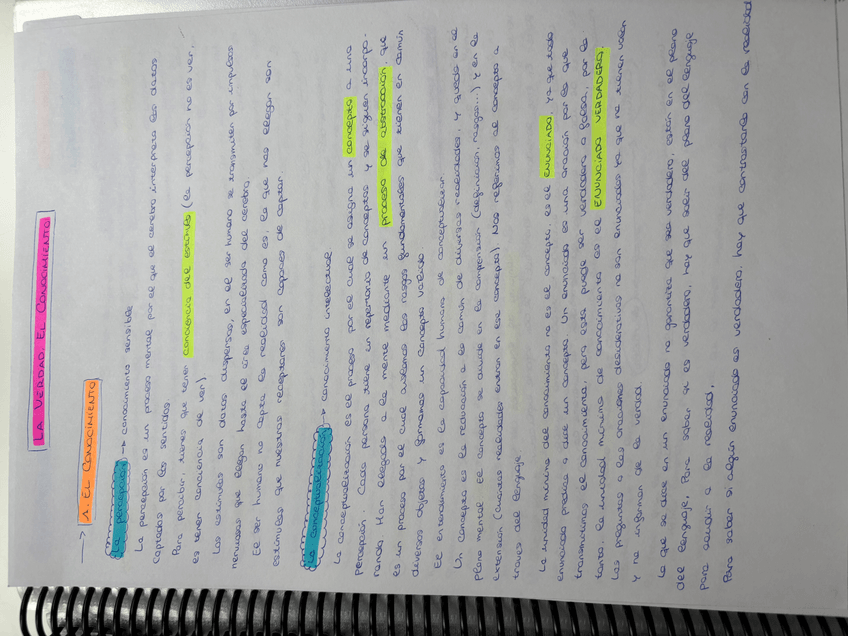 LA VERDAD. EL CONOCIMIENTO
→ 1. EL CONOCIMIENTO
La percepción → conocimiento sensible
La percepción es un proceso mental por el que el cerebro interpreta los datos
captados por los sentidos.
Para percibir, tienes que tener conciencia del estímulo (la percepción no es ver,
es tener conciencia de ver)
Los estímulos son datos dispersos, en el ser humano se transmiten por impulsos
nerviosos que llegan hasta el área especializada del cerebro.
El ser humano no capta la realidad como es la que nos llegan son
estímulos que nuestros receptores son capaces de captar.
La conceptualización → conocimiento intelectual
La conceptualización es el proceso por el cual se asigna un concepto a una
percepción. Cada persona tiene un repertorio de conceptos y se siguen incorpo-
rando. Han llegado a la mente mediante un proceso de abstracción, que
es un proceso por el cual aislamos los rasgos fundamentales que tienen en común
diversos objetos y formamos un concepto válido.
El entendimiento es la capacidad humana de conceptualizar.
Un concepto es la reducción a lo común de diversas realidades, y queda en el
plano mental. El concepto se divide en la comprensión (definición, rasgos...) y en la
extensión (cuantas realidades entran en ese concepto). Nos referimos al concepto a
través del lenguaje.
La unidad mínima del conocimiento no es el concepto, es el enunciado, ya que todo
enunciado predica o dice un concepto. Un enunciado es una oración por la que
transmitimos el conocimiento, pero esta puede ser verdadera o falsa, por lo
tanto, la unidad mínima de conocimiento es el ENUNCIADO VERDADERO.
Las preguntas o las oraciones desiderativas no son enunciados ya que no tienen valor
y no informan de la verdad.
Lo que se dice en un enunciado no garantiza que sea verdadero, están en el plano
del lenguaje. Para saber si es verdadero, hay que salir del plano del lenguaje
para acudir a la realidad.
Para saber si algún enunciado es verdadero, hay que contrastarlo con la realidad